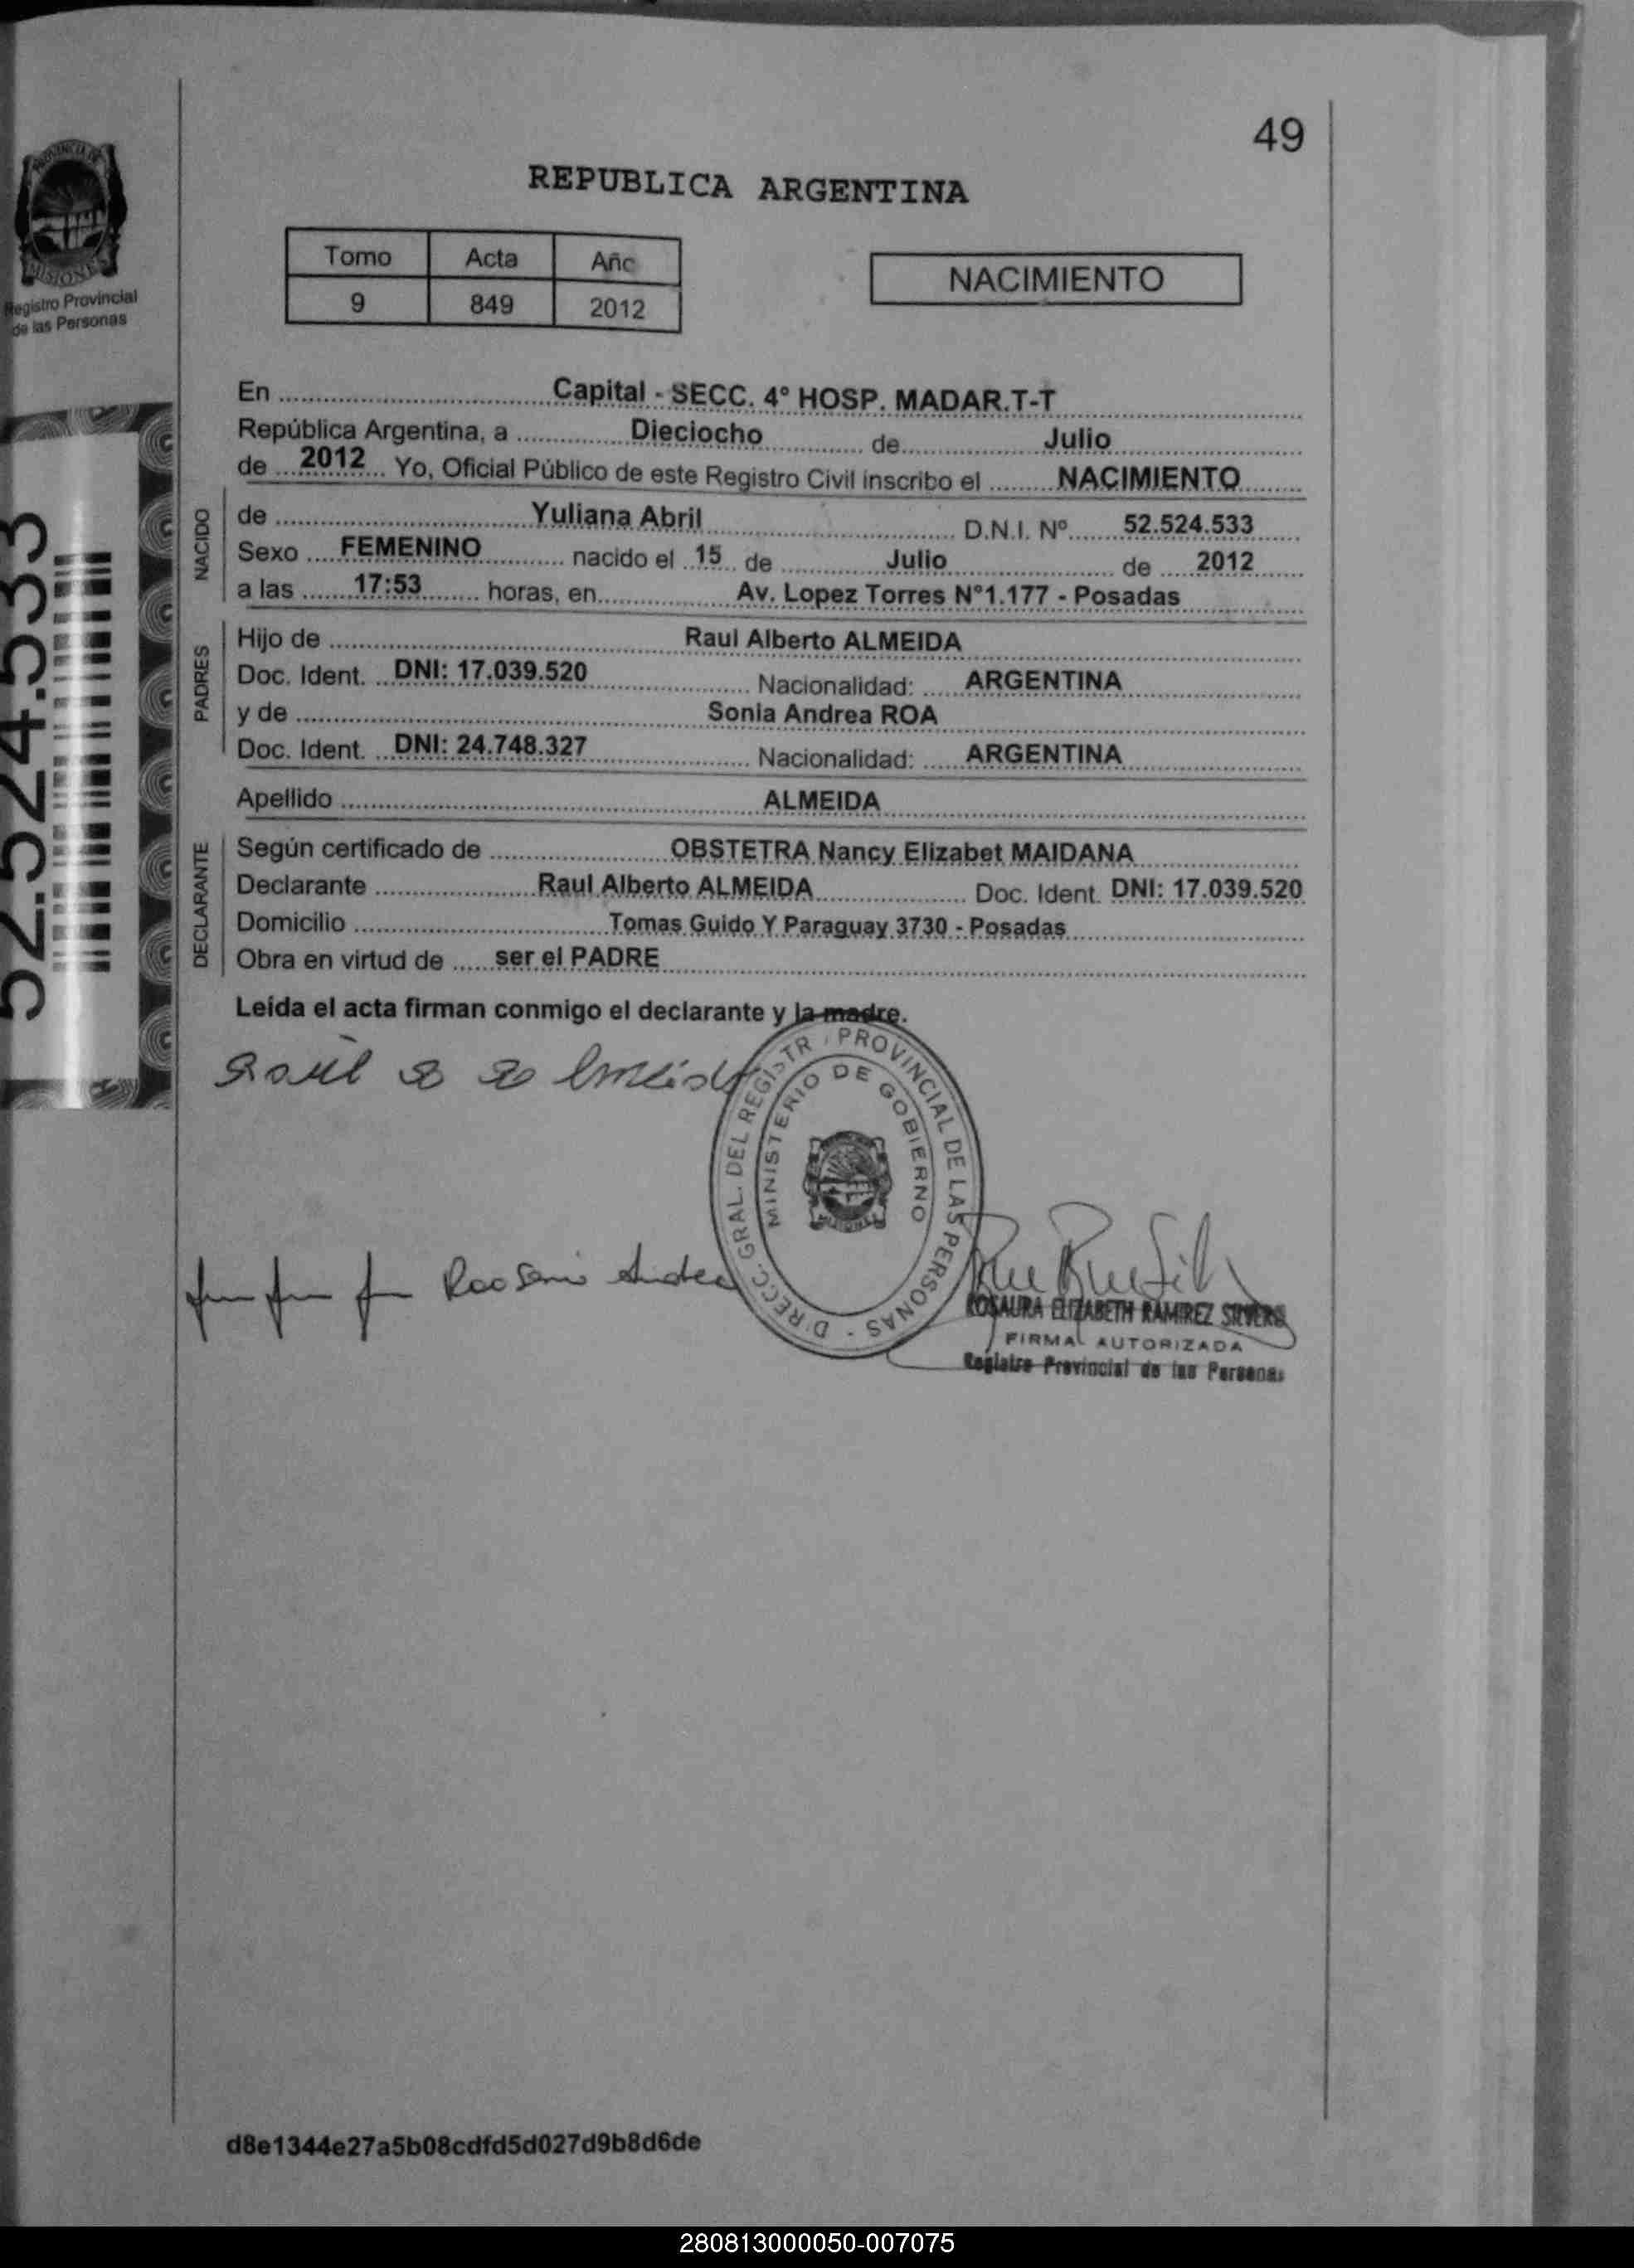 49
PROVINCIA DE
MISIONES
Registro Provincial
de las Personas
REPUBLICA ARGENTINA
Tomo Acta Año
9 849 2012
NACIMIENTO
52.524.533
En Capital - SECC. 4° HOSP. MADAR.T-T
República Argentina, a Dieciocho de Julio
de 2012 Yo, Oficial Público de este Registro Civil inscribo el NACIMIENTO
NACIDO
de Yuliana Abril D.N.I. Nº 52.524.533
Sexo FEMENINO nacido el 15 de Julio de 2012
a las 17:53 horas, en Av. Lopez Torres N°1.177 - Posadas
PADRES
Hijo de Raul Alberto ALMEIDA
Doc. Ident. DNI: 17.039.520 Nacionalidad: ARGENTINA
y de Sonia Andrea ROA
Doc. Ident. DNI: 24.748.327 Nacionalidad: ARGENTINA
Apellido ALMEIDA
DECLARANTE
Según certificado de OBSTETRA Nancy Elizabet MAIDANA
Declarante Raul Alberto ALMEIDA Doc. Ident. DNI: 17.039.520
Domicilio Tomas Guido Y Paraguay 3730 - Posadas
Obra en virtud de ser el PADRE
Leída el acta firman conmigo el declarante y la madre.
DIRECC. GRAL. DEL REGISTR PROVINCIAL DE LAS PERSONAS -
MINISTERIO DE GOBIERNO
MISIONES
Roa Sonia Andrea
ROSAURA ELIZABETH RAMIREZ
FIRMA AUTORIZADA
Registro Provincial de las Personas
d8e1344e27a5b08cdfd5d027d9b8d6de
280813000050-007075